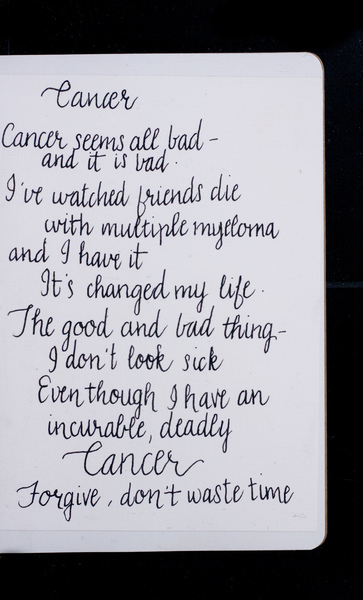 Cancer
Cancer seems all bad -
and it is bad.
I've watched friends die
with multiple myeloma
and I have it
It's changed my life.
The good and bad thing-
I don't look sick
Even though I have an
incurable, deadly
Cancer
Forgive, don't waste time